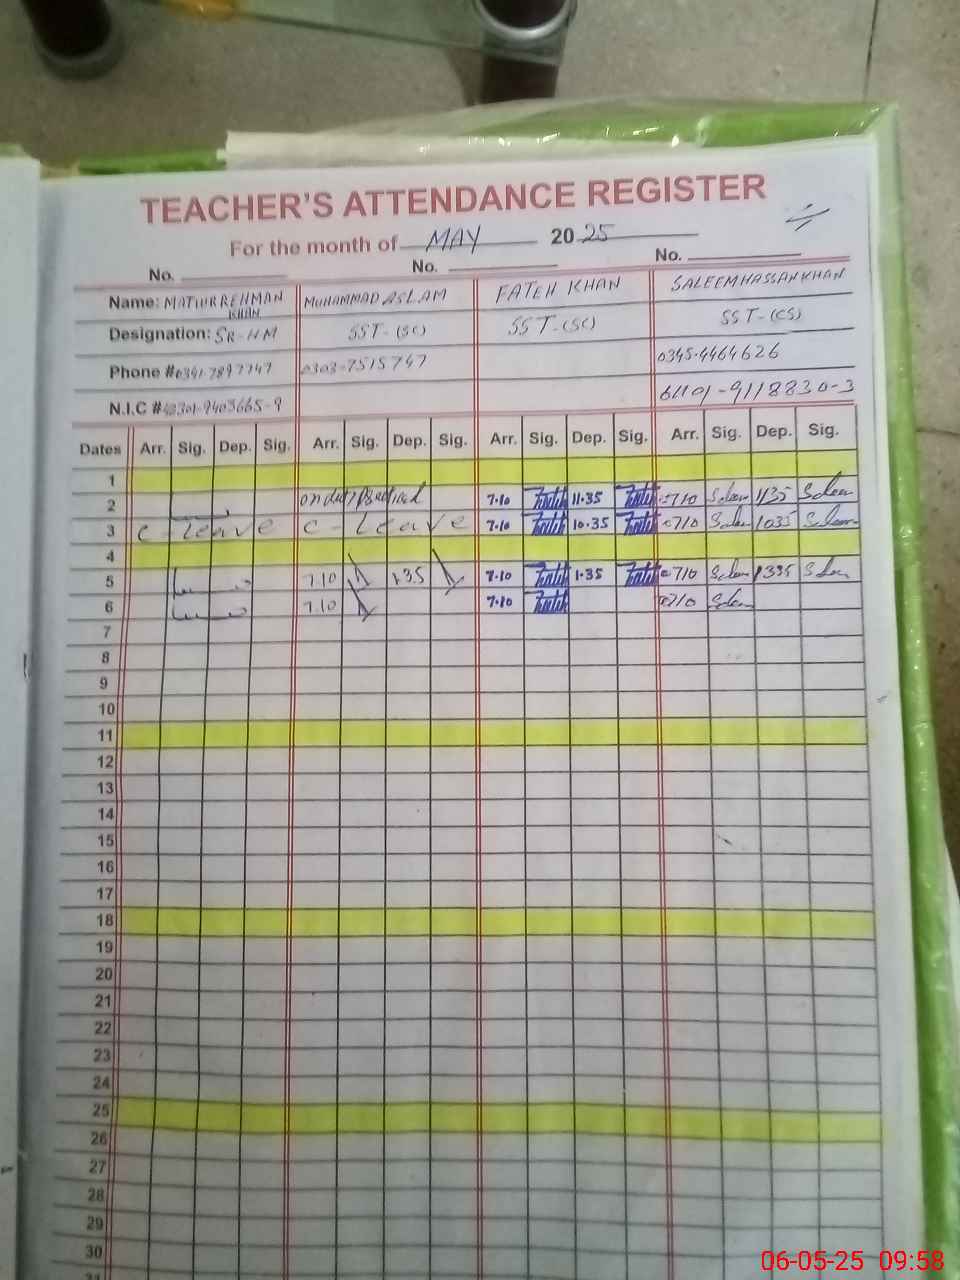 TEACHER'S ATTENDANCE REGISTER
For the month of MAY 2025
No. No. No.
Name: MATIUR REHMAN KHAN MUHAMMAD ASLAM FATEH KHAN SALEEM HASSAN KHAN
Designation: SR-HM SST-(SC) SST-(SC) SST-(CS)
Phone # 0303-7515747 0345-4464626
N.I.C # 61101-9118830-3
Dates Arr. Sig. Dep. Sig. Arr. Sig. Dep. Sig. Arr. Sig. Dep. Sig. Arr. Sig. Dep. Sig.
1
2 on duty 7.10 Fateh 11.35 Fateh 0710 Saleem 1135 Saleem
3 C-Leave C-Leave 7.10 Fateh 10.35 Fateh 0710 Saleem 1035 Saleem
4
5 7.10 1.35 7.10 Fateh 1.35 Fateh 0710 Saleem 1335 Saleem
6 7.10 7.10 Fateh 0710 Saleem
7
8
9
10
11
12
13
14
15
16
17
18
19
20
21
22
23
24
25
26
27
28
29
30
31
06-05-25 09:58